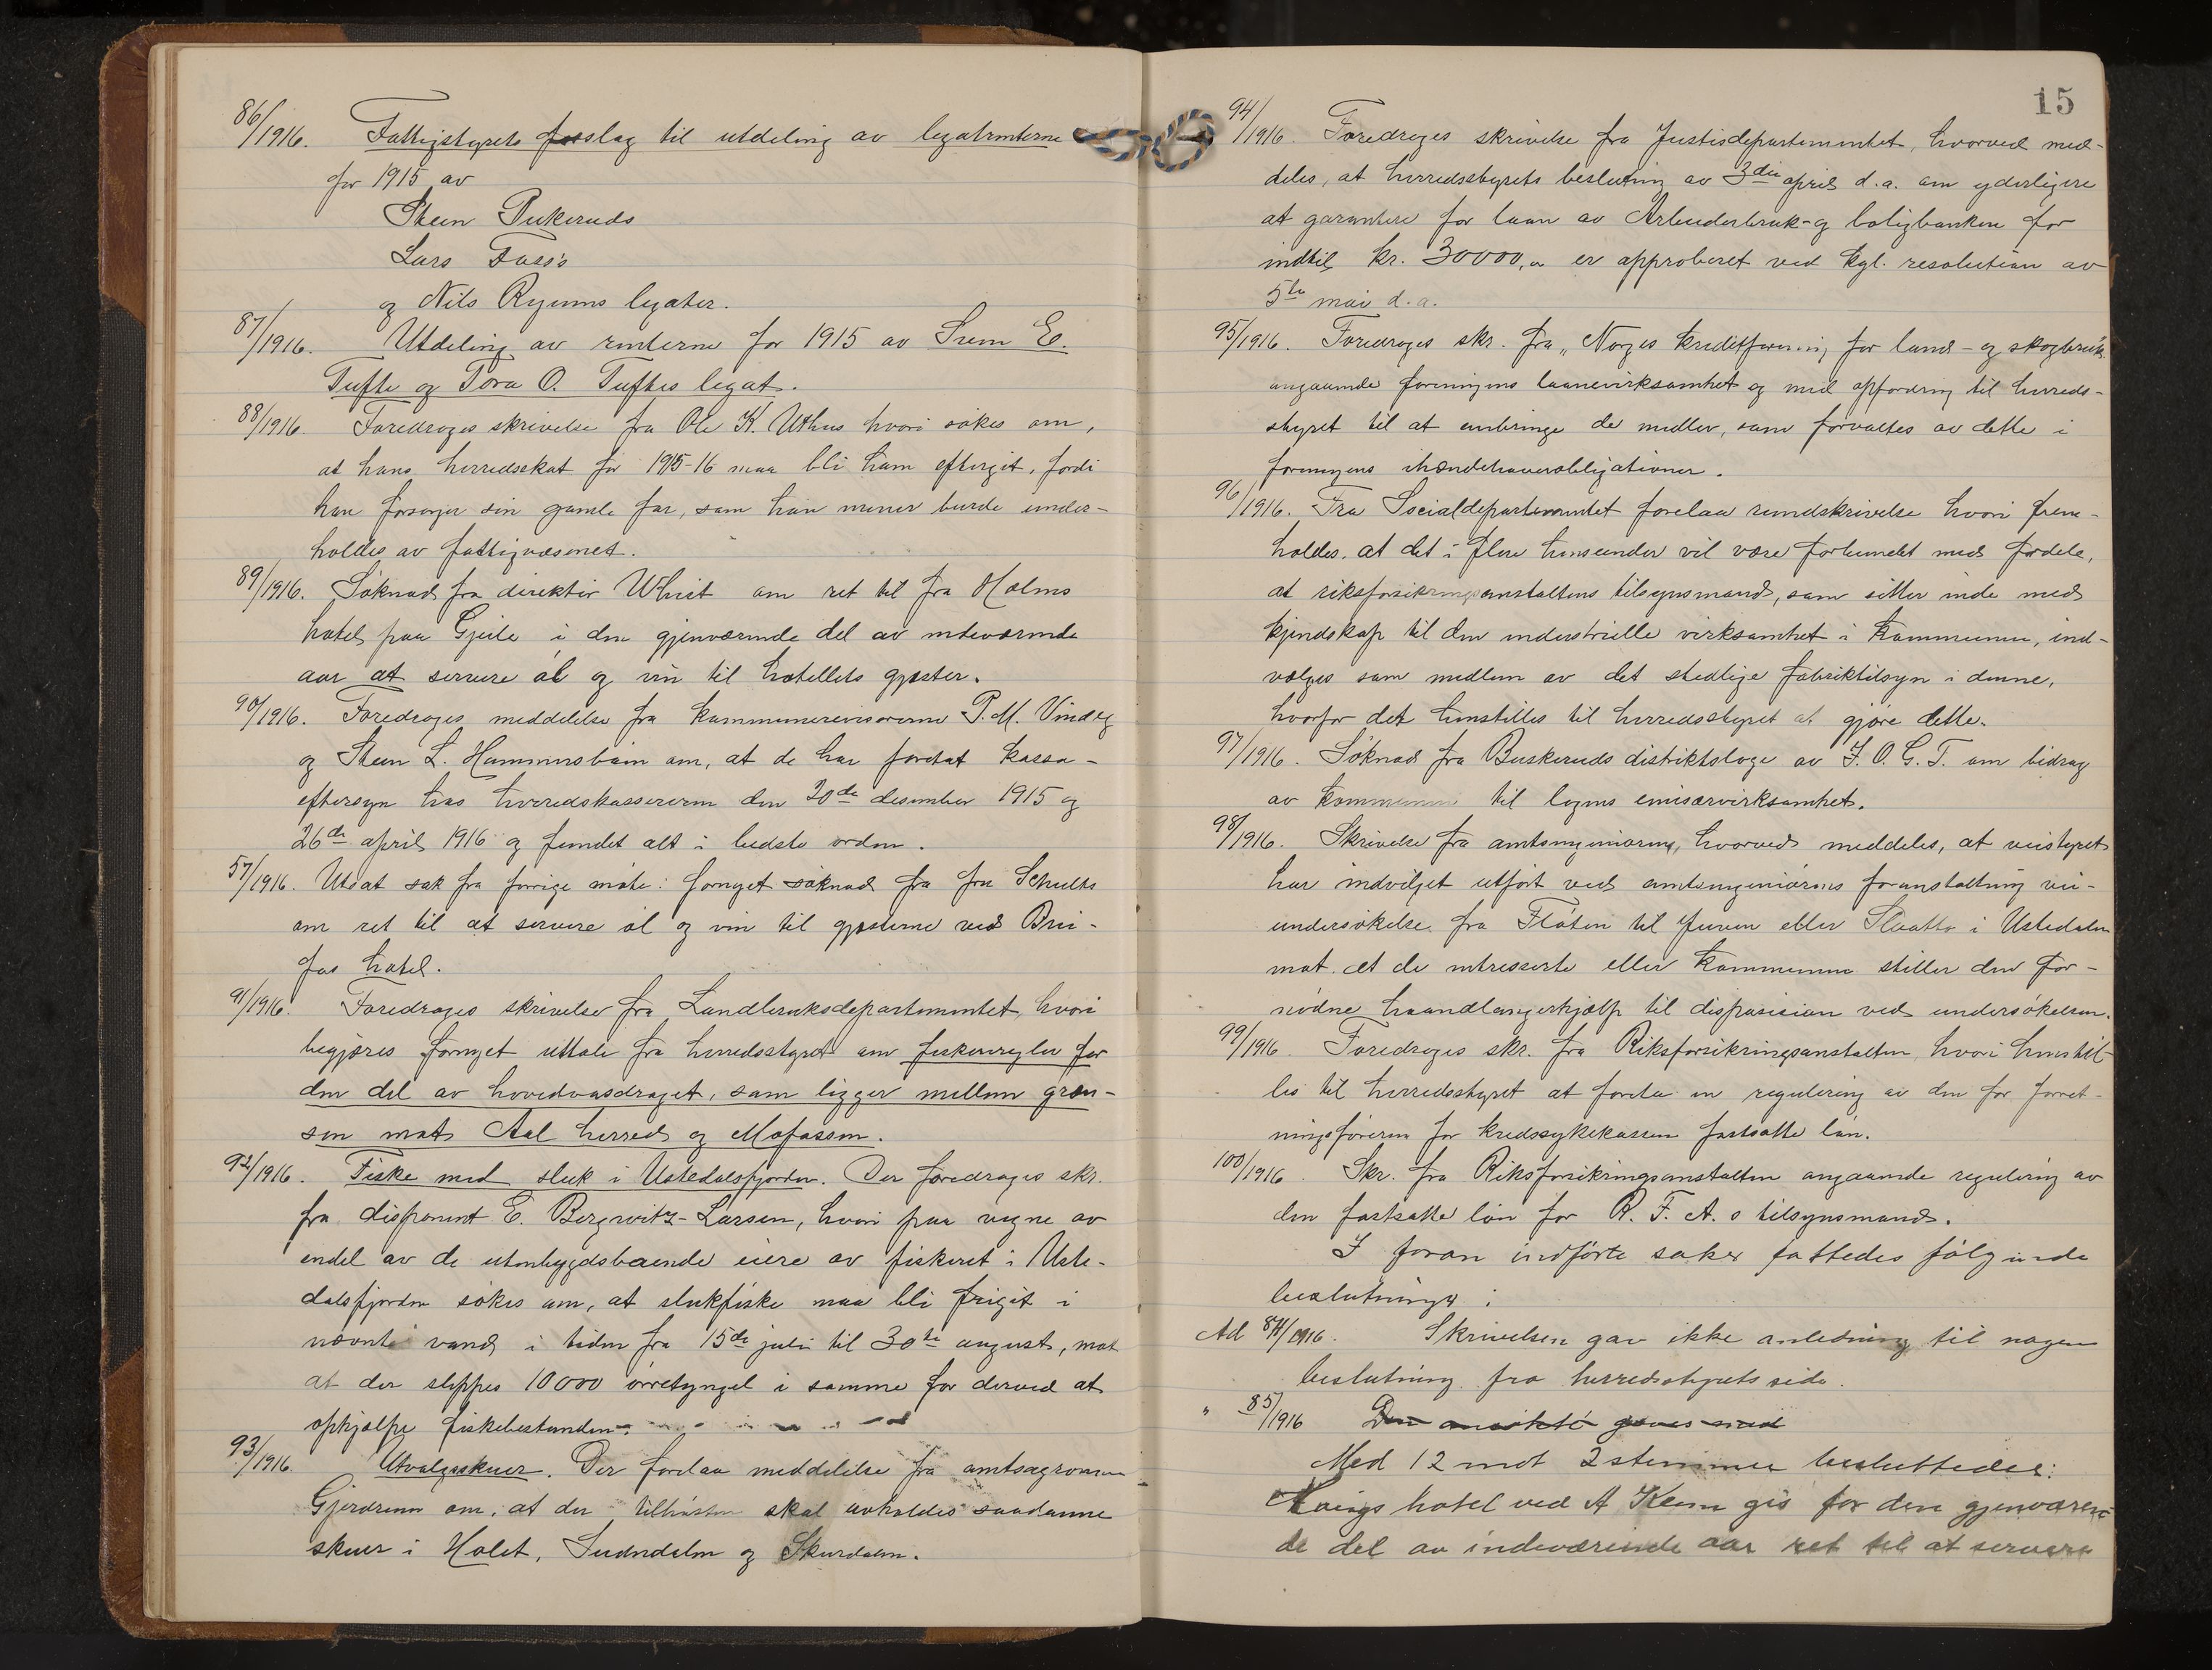 86/1916. Fattigstyrets forslag til utdeling av legatrenterne
for 1915 av
Steen Pukeruds
Lars Foss's
og Nils Ryenns legater.
87/1916. Utdeling av renterne for 1915 av Svem E.
Tufte og Tora O. Tuftes legat.
88/1916. Foredroges skrivelse fra Ole K. Uthus hvori søkes om,
at hans herredsskat for 1915-16 maa bli ham eftergit, fordi
han forsørger sin gamle far, som han mener burde under-
holdes av fattigvæsenet.
89/1916. Søknad fra direktør Whist om ret til fra Holms
hotel paa Gjeilo i den gjenværende del av indeværende
aar at servere øl og vin til hotellets gjæster.
90/1916. Foredroges meddelelse fra kommunerevisorerne P. M. Vindeg
og Steen L. Hammersbøin om, at de har foretat kassa-
eftersyn hos herredskassereren den 20de desember 1915 og
26de april 1916 og fundet alt i bedste orden.
57/1916. Utsat sak fra forrige møte: fornyet søknad fra fru Schults
om ret til at servere øl og vin til gjæsterne ved Brei-
fos hotel.
91/1916. Foredroges skrivelse fra Landbruksdepartementet, hvori
begjæres fornyet uttale fra herredsstyret om fiskeregler for
den del av hovedvasdraget, som ligger mellem græn-
sen mot Aal herred og Mofossen.
92/1916. Fiske med sluk i Ustedalsfjorden. Der foredroges skr.
fra disponent E. Bergwitz-Larsen, hvori paa vegne av
endel av de utenbygdsboende eiere av fiskeret i Uste-
dalsfjorden søkes om, at slukfiske maa bli frigit i
nævnte vand i tiden fra 15de juli til 30te august, mot
at der slippes 10000 ørretyngel i samme for derved at
ophjælpe fiskebestanden.
93/1916. Utvalgsskuer. Der forelaa meddelelse fra amtsagronom
Gjerdrenn om, at der tilhøsten skal avholdes saadanne
skuer i Holet, Sudndalen og Skurdalen.
15
94/1916. Foredroges skrivelse fra Justisdepartementet, hvorved med-
deles, at herredsstyrets beslutning av 3die april d.a. om yderligere
at garantere for laan av Arbeiderbruk- og boligbanken for
indtil kr. 30000,00 er approberet ved kgl. resolution av
5te mai d.a.
95/1916. Foredroges skr. fra "Norges kreditforening for land- og skogbruk
angaaende foreningens laanevirksomhet og med opfordring til herreds-
styret til at anbringe de midler, som forvaltes av dette i
foreningens ihændehaverobligationer.
96/1916. Fra Socialdepartementet forelaa rundskrivelse hvori frem-
holdes, at det i flere henseender vil være forbundet med fordele,
at riksforsikringsanstaltens tilsynsmand, som sitter inde med
kjendskap til den industrielle virksomhet i kommunen, ind-
vælges som medlem av det stedlige fabriktilsyn i denne,
hvorfor det henstilles til herredsstyret at gjøre dette.
97/1916. Søknad fra Buskeruds distriktsloge av I.O.G.T. om bidrag
av kommunen til logens emisærvirksomhet.
98/1916. Skrivelse fra amtsingeniøren, hvorved meddeles, at veistyret
har indvilget utført ved amtsingeniørens foranstaltning vei-
undersøkelse fra Fløten til Juven eller Slaatto i Ustedalen
mot at de intresserte eller kommunen stiller den for-
nødne haandlangerhjælp til disposision ved undersøkelsen.
99/1916. Foredroges skr. fra Riksforsikringsanstalten, hvori henstil-
les til herredsstyret at foreta en regulering av den for forret-
ningsføreren for kredssykekassen fastsatte løn.
100/1916. Skr. fra Riksforsikringsanstalten angaaende regulering av
den fastsatte løn for R. F. A.s tilsynsmand.
I foran indførte saker fattedes følgende
beslutninger:
Ad 84/1916. Skrivelsen gav ikke anledning til nogen
beslutning fra herredsstyrets side.
" 85/1916 Den ansøkte gaves med
Med 12 mot 2 stemmer besluttedes:
hotel ved gis for den gjenværen-
de del av indeværende aar ret til at servere